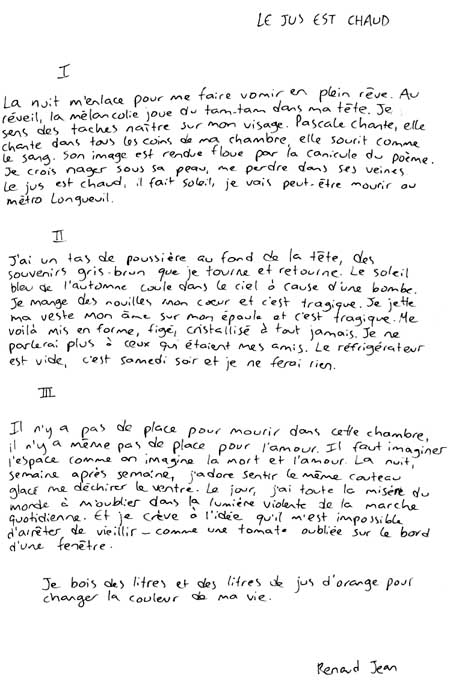 LE JUS EST CHAUD
I
La nuit m'enlace pour me faire vomir en plein rêve. Au
réveil, la mélancolie joue du tam-tam dans ma tête. Je
sens des taches naître sur mon visage. Pascale chante, elle
chante dans tous les coins de ma chambre, elle sourit comme
le sang. Son image est rendue floue par la canicule du poème.
Je crois nager sous sa peau, me perdre dans ses veines.
Le jus est chaud, il fait soleil, je vais peut-être mourir au
métro Longueuil.
II
J'ai un tas de poussière au fond de la tête, des
souvenirs gris-brun que je tourne et retourne. Le soleil
bleu de l'automne coule dans le ciel à cause d'une bombe.
Je mange des nouilles mon cœur et c'est tragique. Je jette
ma veste mon âme sur mon épaule et c'est tragique. Me
voilà mis en forme, figé, cristallisé à tout jamais. Je ne
parlerai plus à ceux qui étaient mes amis. Le réfrigérateur
est vide, c'est samedi soir et je ne ferai rien.
III
Il n'y a pas de place pour mourir dans cette chambre,
il n'y a même pas de place pour l'amour. Il faut imaginer
l'espace comme on imagine la mort et l'amour. La nuit,
semaine après semaine, j'adore sentir le même couteau
glacé me déchirer le ventre. Le jour, j'ai toute la misère du
monde à m'oublier dans la lumière violente de la marche
quotidienne. Et je crève à l'idée qu'il m'est impossible
d'arrêter de vieillir - comme une tomate oubliée sur le bord
d'une fenêtre.
Je bois des litres et des litres de jus d'orange pour
changer la couleur de ma vie.
Renaud Jean